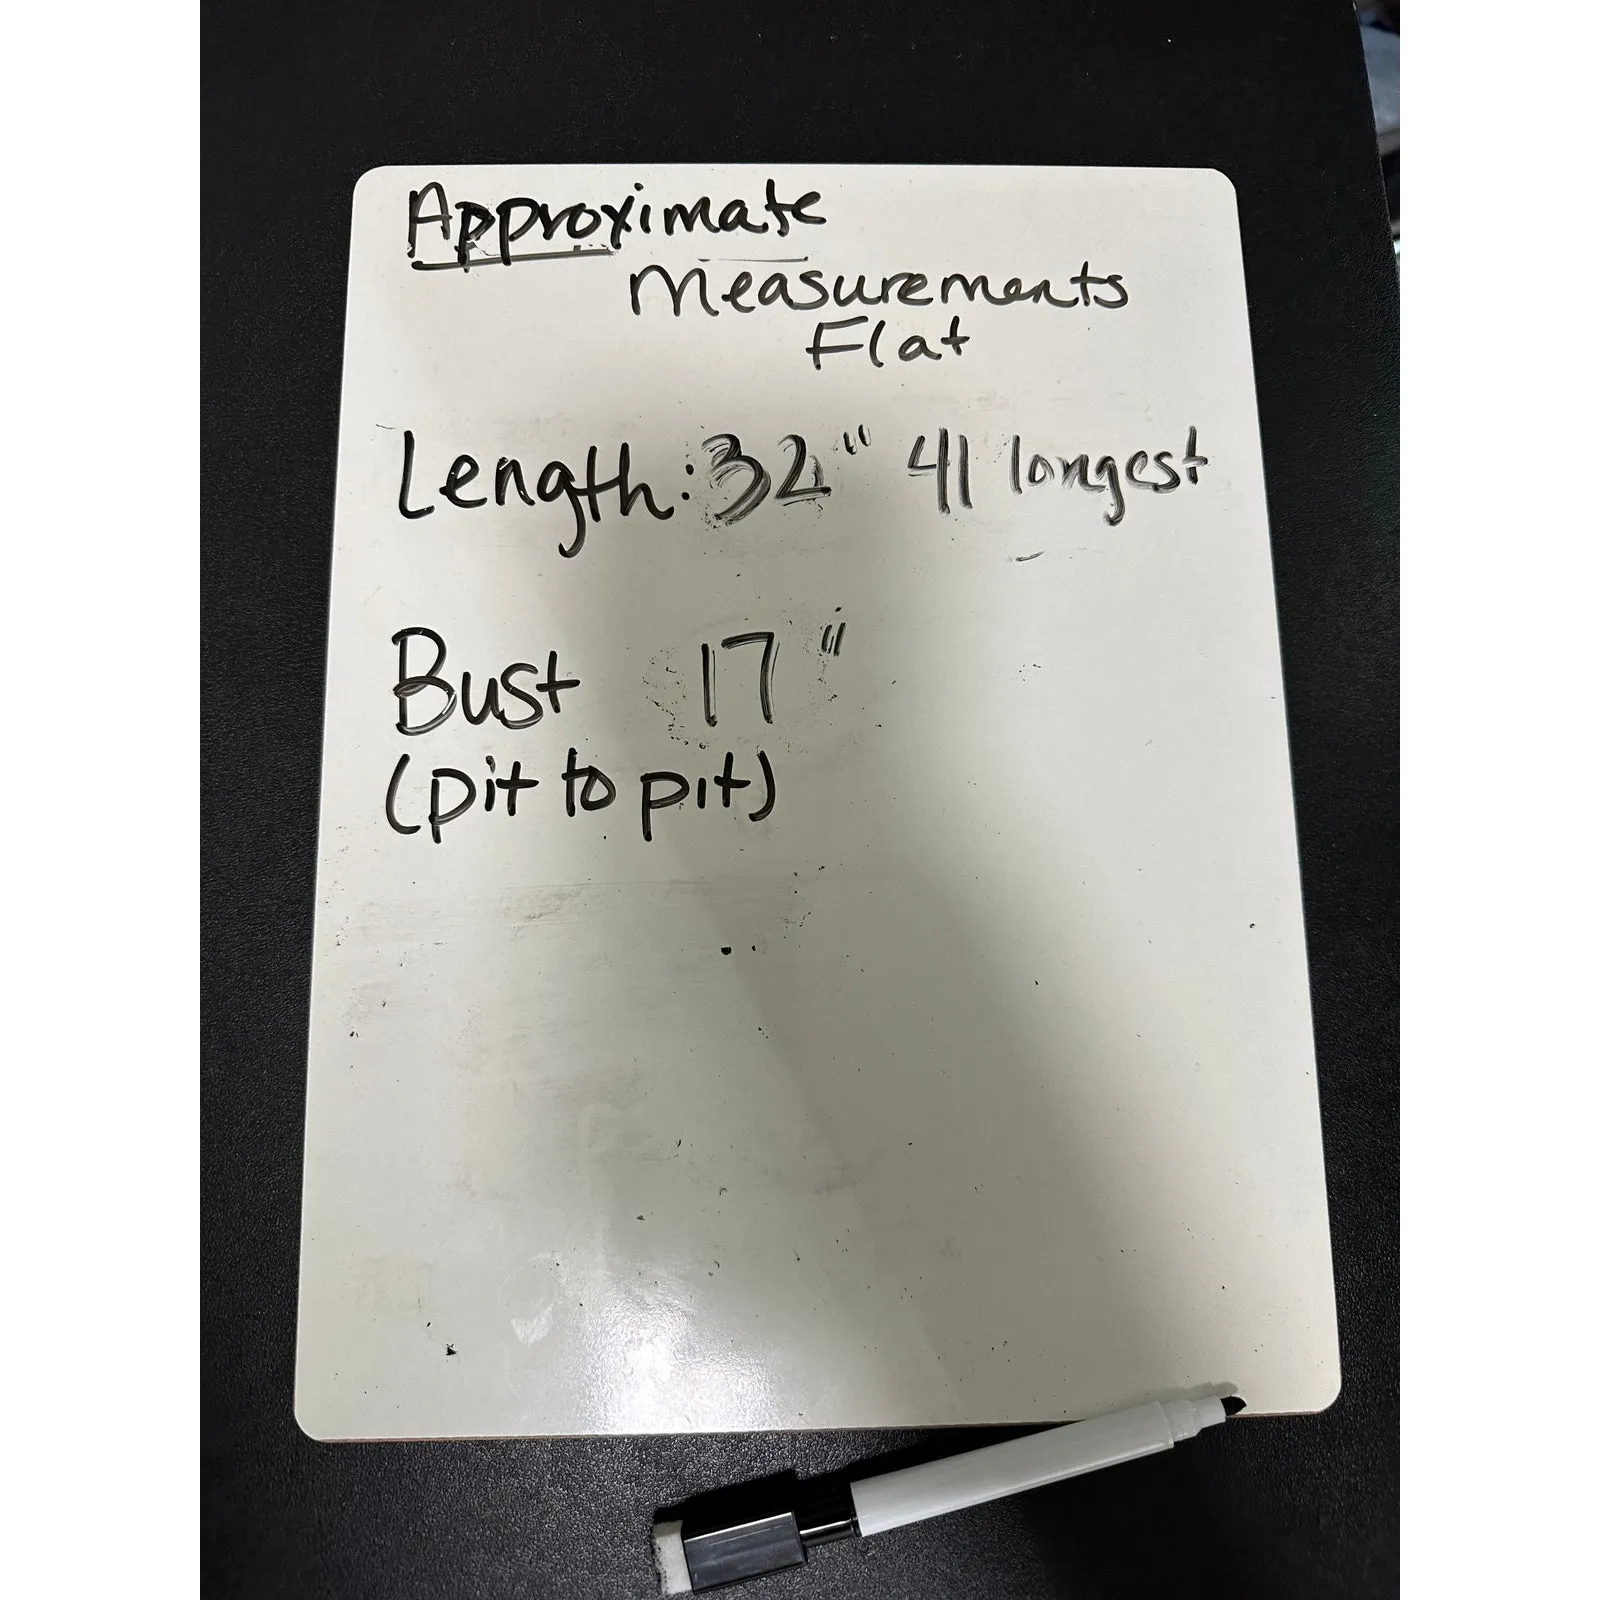 Approximate
Measurements
Flat
Length: 32" 41 longest
Bust 17"
(pit to pit)